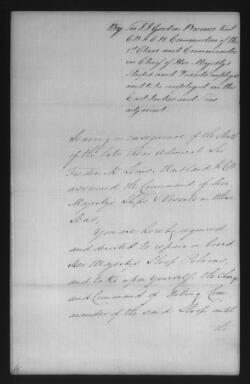 By Sir J J Gordon Bremer Knt
C.B. K.C.H. Commodore of the
1st Class and Commander
in Chief of Her Majesty's
Ships and Vessels employed
and to be employed in the
East Indies and Seas
adjacent
Having in consequence of the death
of the late Rear Admiral Sir
Frederick Lewis Maitland KCB
assumed the Command of Her
Majesty's Ships & Vessels in these
Seas,
You are hereby required
and directed to repair on board
Her Majesty's Sloop Pelorus,
and take upon yourself the Charge
and Command of Acting Com
mander of the said Sloop until
the